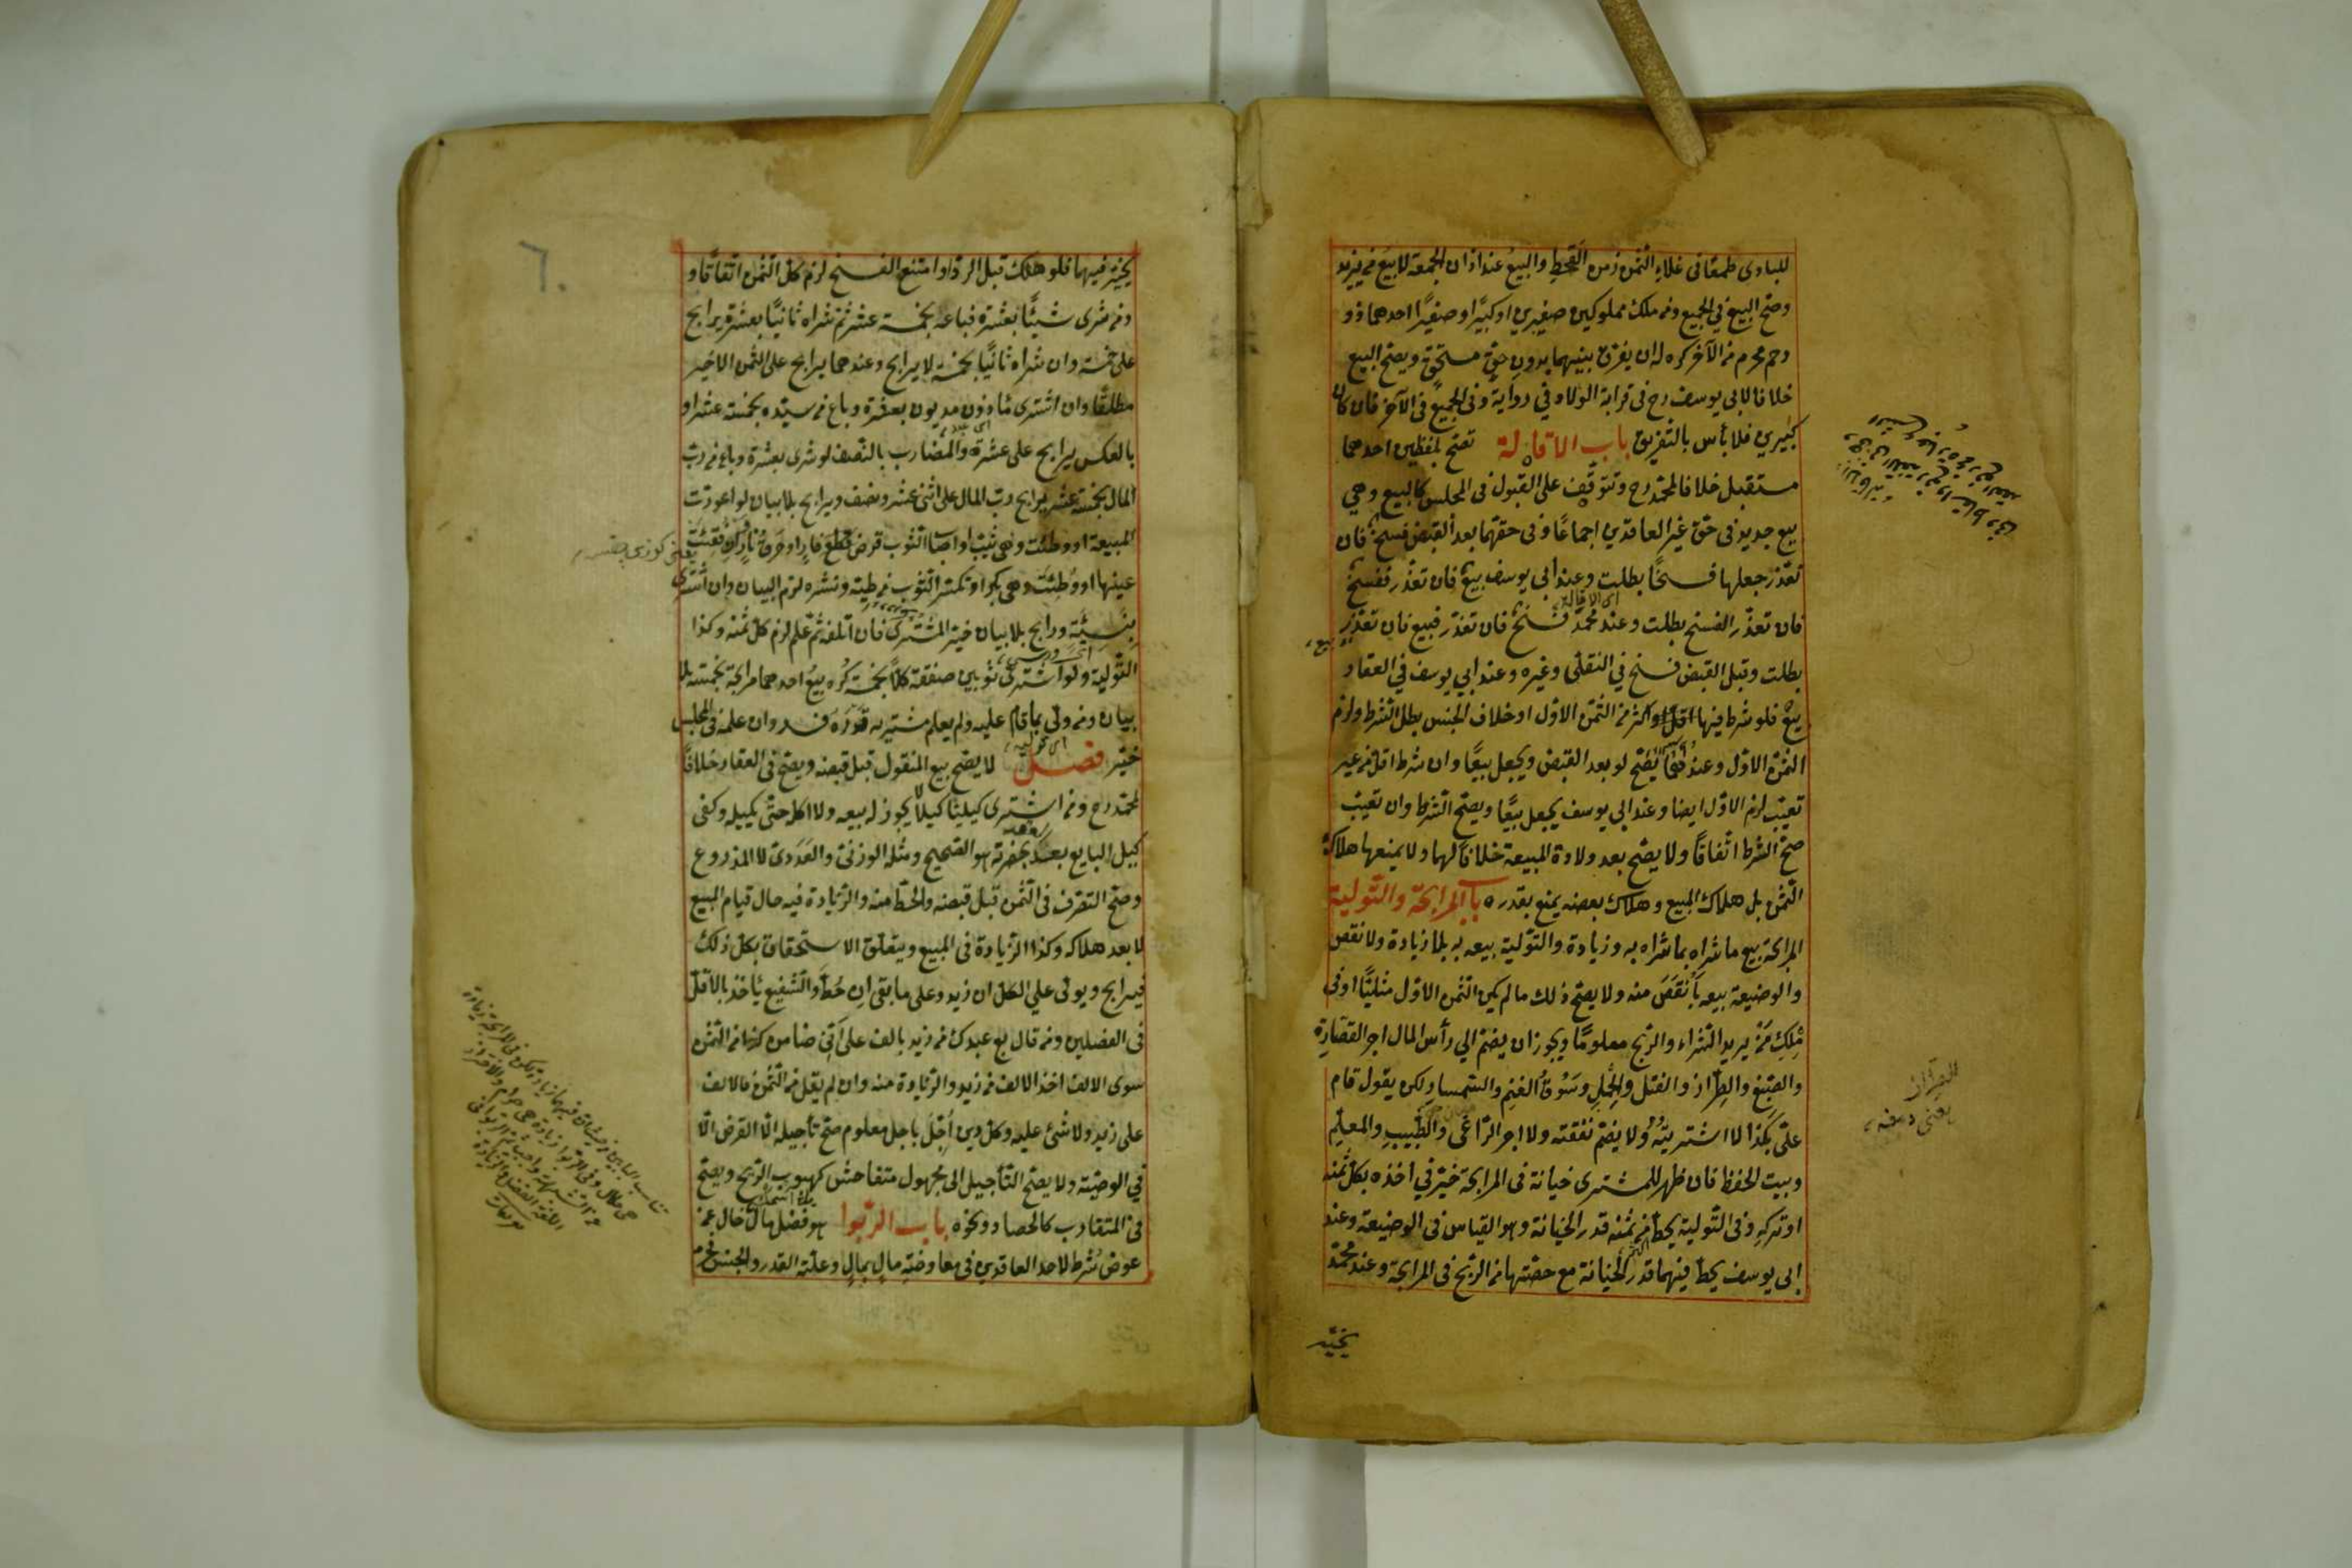 للبادى طمعا فى غلاء الثمن زمن القحط والبيع عند اذان الجمعة لا بيع من يزيد
وصح البيع في الجميع ومن ملك مملوكين صغيرين او كبيرا وصغيرا احدهما ذو
رحم محرم من الآخر كره له ان يفرق بينهما بدون حق مستحق ويصح البيع
خلافا لابى يوسف رح فى قرابة الولاد في رواية وفى الجميع فى الآخر فان كانا
كبيرين فلا بأس بالتفريق باب الاقالة تصح بلفظين احدهما
مستقبل خلافا لمحمد رح وتتوقف على القبول فى المجلس كالبيع وهي
بيع جديد فى حق غير العاقدين اجماعا وفى حقهما بعد القبض فسخ فان
تعذر جعلها فسخا بطلت وعند ابى يوسف بيع فان تعذر ففسخ
فان تعذر الفسخ بطلت وعند محمد فسخ فان تعذر فبيع فان تعذر
بطلت وقبل القبض فسخ في النقلى وغيره وعند ابي يوسف في العقار
بيع فلو شرط فيها اقل او اكثر من الثمن الاول او خلاف الجنس بطل الشرط ولزم
الثمن الاول وعندهما يصح لو بعد القبض ويجعل بيعا وان شرط اقل من غير
تعيب لزم الاول ايضا وعند ابى يوسف يجعل بيعا ويصح الشرط وان تعيب
صح الشرط اتفاقا ولا يصح بعد ولادة المبيعة خلافا لهما ولا يمنعها هلاك
الثمن بل هلاك المبيع وهلاك بعضه يمنع بقدره باب المرابحة والتولية
المرابحة بيع ما شراه بما شراه به وزيادة والتولية بيعه به بلا زيادة ولا نقص
والوضيعة بيعه بأنقص منه ولا يصح ذلك ما لم يكن الثمن الاول مثليا او فى
ملك من يريد الشراء والربح معلوما ويجوز ان يضم الي رأس المال اجر القصارة
والصبغ والطراز والفتل والحمل وسوق الغنم والسمسار لكن يقول قام
علي بكذا لا اشتريته ولا يضم نفقته ولا اجر الراعى والطبيب والمعلم
وبيت الحفظ فان ظهر للمشترى خيانة فى المرابحة خير في اخذه بكل ثمنه
او تركه وفى التولية يحط من ثمنه قدر الخيانة وهو القياس فى الوضيعة وعند
ابى يوسف يحط فيهما قدر الخيانة مع حصتها من الربح فى المرابحة وعند محمد
يخير
يعنى
٦٠
يخير فيهما فلو هلك قبل الرد او امتنع الفسخ لزم كل الثمن اتفاقا و
من شرى شيئا بعشرة فباعه بخمسة عشر ثم شراه ثانيا بعشرة يرابح
على خمسة وان شراه ثانيا بخمسة لا يرابح وعندهما يرابح على الثمن الاخير
مطلقا وان اشترى مأذون مديون بعشرة وباع من سيده بخمسة عشر او
بالعكس يرابح على عشرة والمضارب بالنصف لو شرى بعشرة وباع من رب
المال بخمسة عشر يرابح رب المال على اثنى عشر ونصف ويرابح بلا بيان لو اعورت
المبيعة او وطئت وهى ثيب او اصاب الثوب قرض فار او حرق نار وان فقئت
عينها او وطئت وهى بكر او تكسر الثوب من طيه ونشره لزم البيان وان اشترى
بنسيئة ورابح بلا بيان خير المشترى فان اتلفه ثم علم لزم كل ثمنه وكذا
التولية ولو اشترى ثوبين صفقة كلا بخمسة كره بيع احدهما مرابحة بخمسة بلا
بيان ومن ولى بما قام عليه ولم يعلم مشتريه قدره فسد وان علمه فى المجلس
خير فصل لا يصح بيع المنقول قبل قبضه ويصح فى العقار خلافا
لمحمد رح ومن اشترى كيليا كيلا لا يجوز له بيعه ولا اكله حتى يكيله وكفى
كيل البايع بعد العقد بحضرته هو الصحيح ومثله الوزنى والعددى لا المذروع
وصح التصرف فى الثمن قبل قبضه والحط منه والزيادة فيه حال قيام المبيع
لا بعد هلاكه وكذا الزيادة فى المبيع ويتعلق الاستحقاق بكل ذلك
فيرابح ويولى علي الكل ان زيد وعلى ما بقى ان حط والشفيع يأخذ بالاقل
فى الفصلين ومن قال بع عبدك من زيد بالف على انى ضامن كذا من الثمن
سوى الالف اخذ الالف من زيد والزيادة منه وان لم يقل من الثمن فالالف
على زيد ولا شئ عليه وكل دين اجل باجل معلوم صح تأجيله الا القرض الا
في الوصية ولا يصح التأجيل الى مجهول متفاحش كهبوب الريح ويصح
فى المتقارب كالحصاد ونحوه باب الربوا هو فضل مال خال عن
عوض شرط لاحد العاقدين فى معاوضة مال بمال وعلته القدر والجنس فحرم